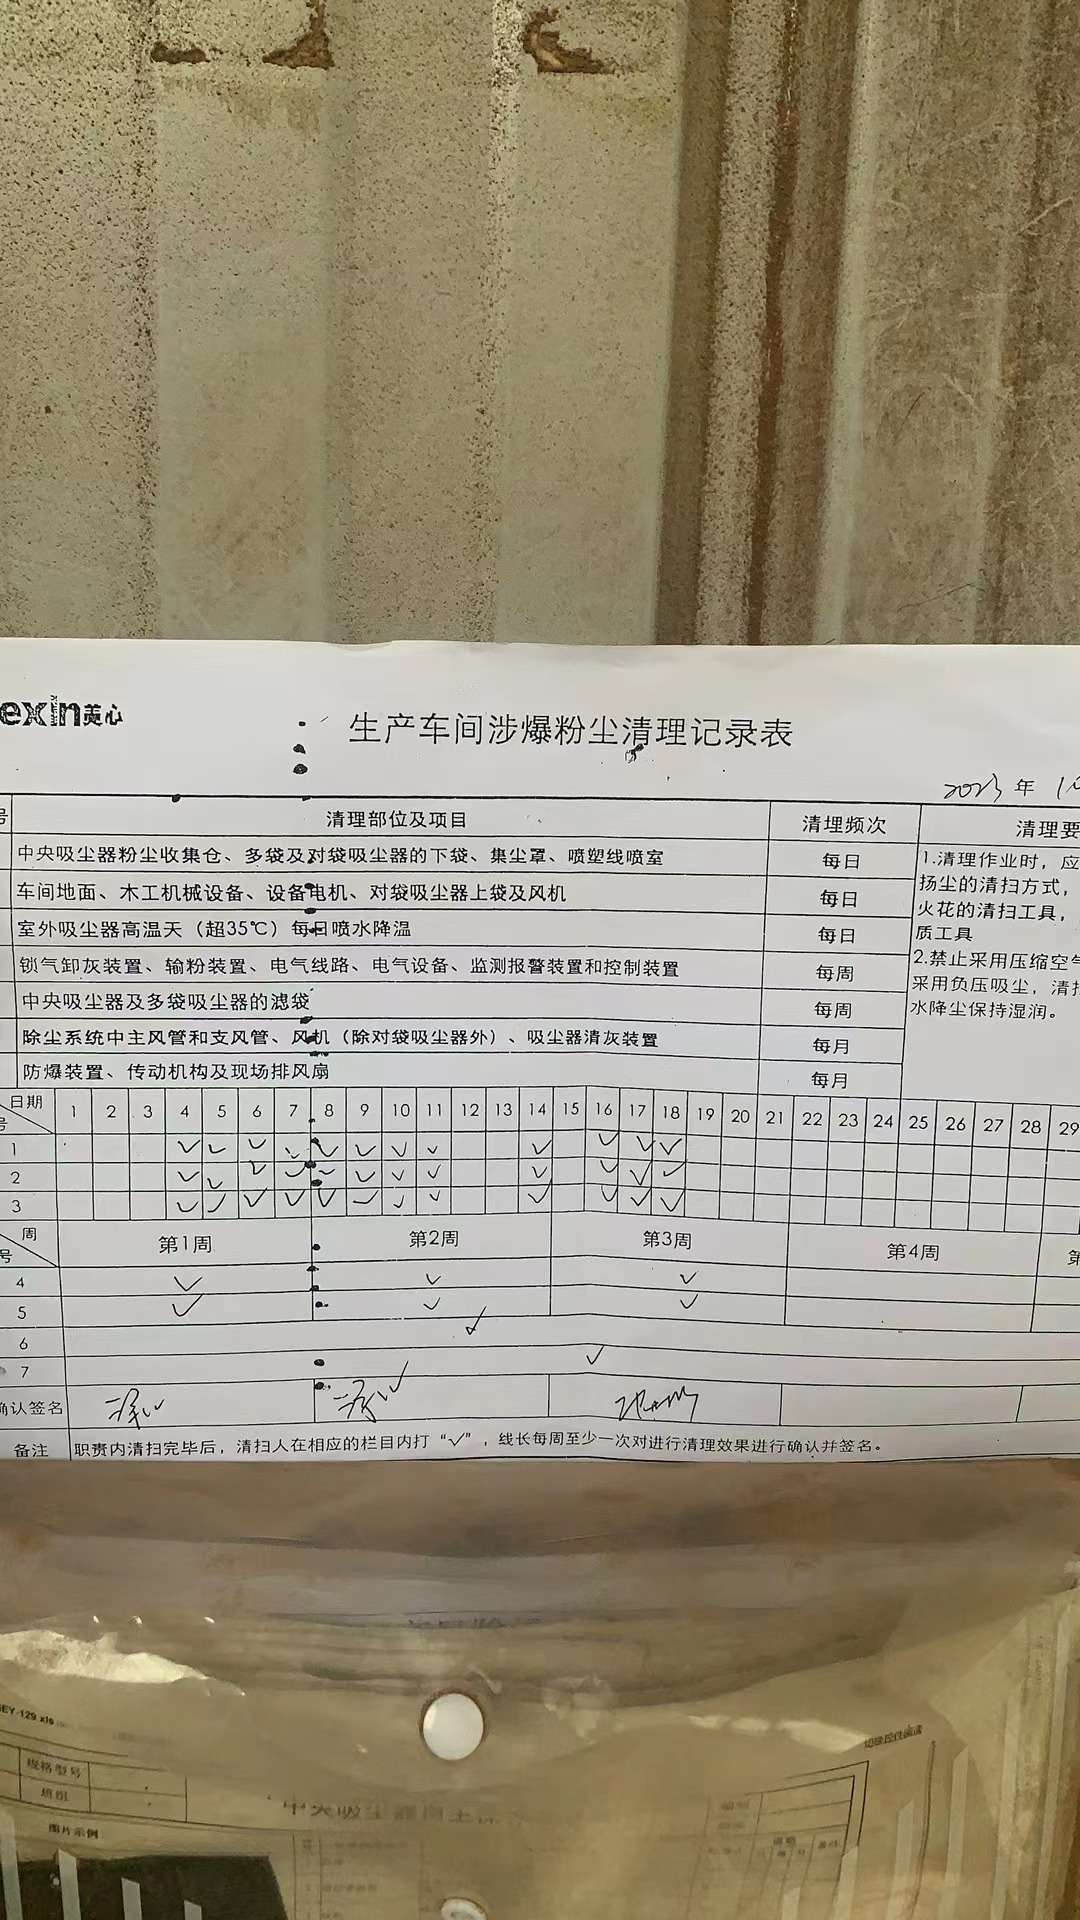 exin美心
生产车间涉爆粉尘清理记录表
2023年
号 清理部位及项目 清理频次 清理要
中央吸尘器粉尘收集仓、多袋及对袋吸尘器的下袋、集尘罩、喷塑线喷室 每日
车间地面、木工机械设备、设备电机、对袋吸尘器上袋及风机 每日
室外吸尘器高温天（超35℃）每日喷水降温 每日
锁气卸灰装置、输粉装置、电气线路、电气设备、监测报警装置和控制装置 每周
中央吸尘器及多袋吸尘器的滤袋 每周
除尘系统中主风管和支风管、风机（除对袋吸尘器外）、吸尘器清灰装置 每月
防爆装置、传动机构及现场排风扇 每月
1.清理作业时，应
扬尘的清扫方式，
火花的清扫工具，
质工具
2.禁止采用压缩空气
采用负压吸尘，清扫
水降尘保持湿润。
日期 1 2 3 4 5 6 7 8 9 10 11 12 13 14 15 16 17 18 19 20 21 22 23 24 25 26 27 28 29
号
1 ✓ ✓ ✓ ✓ ✓ ✓ ✓ ✓ ✓ ✓ ✓ ✓
2 ✓ ✓ ✓ ✓ ✓ ✓ ✓ ✓ ✓ ✓ ✓ ✓
3 ✓ ✓ ✓ ✓ ✓ ✓ ✓ ✓ ✓ ✓ ✓ ✓
周 第1周 第2周 第3周 第4周 第
号
4 ✓ ✓ ✓
5 ✓ ✓ ✓
6 ✓
7 ✓
确认签名
备注 职责内清扫完毕后，清扫人在相应的栏目内打“✓”，线长每周至少一次对进行清理效果进行确认并签名。
EY-129.xls
规格型号
班组
图片示例